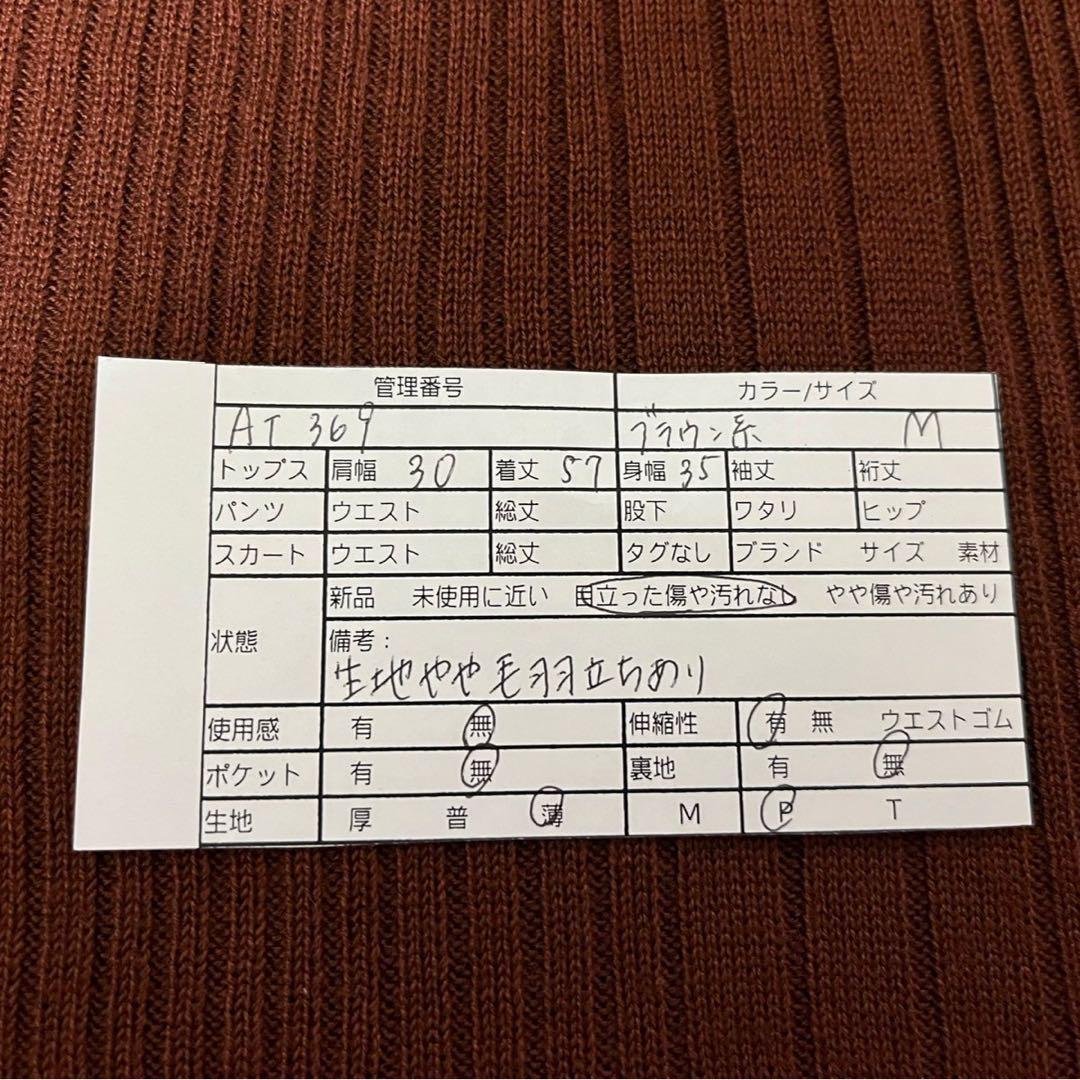 管理番号 カラー/サイズ
AT 369 ブラウン系 M
トップス 肩幅 30 着丈 57 身幅 35 袖丈 裄丈
パンツ ウエスト 総丈 股下 ワタリ ヒップ
スカート ウエスト 総丈 タグなし ブランド サイズ 素材
新品 未使用に近い 目立った傷や汚れなし やや傷や汚れあり
状態 備考:
生地やや毛羽立ちあり
使用感 有 無 伸縮性 有 無 ウエストゴム
ポケット 有 無 裏地 有 無
生地 厚 普 薄 M P T